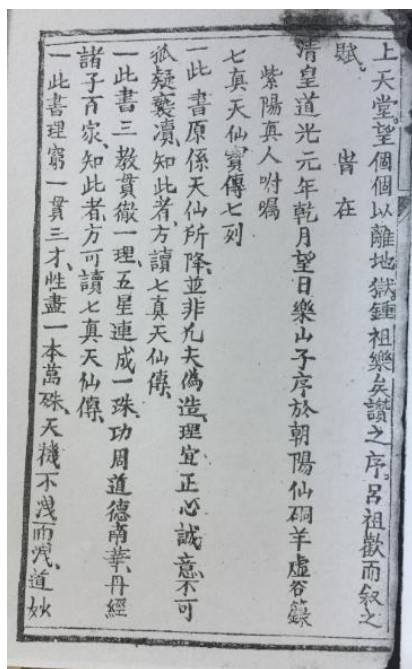 上天堂。望個個以離地獄。鍾祖樂矣讚之序。呂祖歡而敘之
賦。 旹在
清皇道光元年乾月望日樂山子序於朝陽仙硐羊虛谷籙
紫陽真人咐囑
七真天仙寶傳七列
一此書原係天仙所降、並非凡夫偽造、理宜正心誠意、不可
狐疑褻瀆、知此者、方讀七真天仙傳、
一此書三教貫徹一理、五星連成一珠、功周道德南華、丹經
諸子百家、知此者、方可讀七真天仙傳、
一此書理窮一貫三才、性盡一本萬殊、天機不洩而洩、道妙